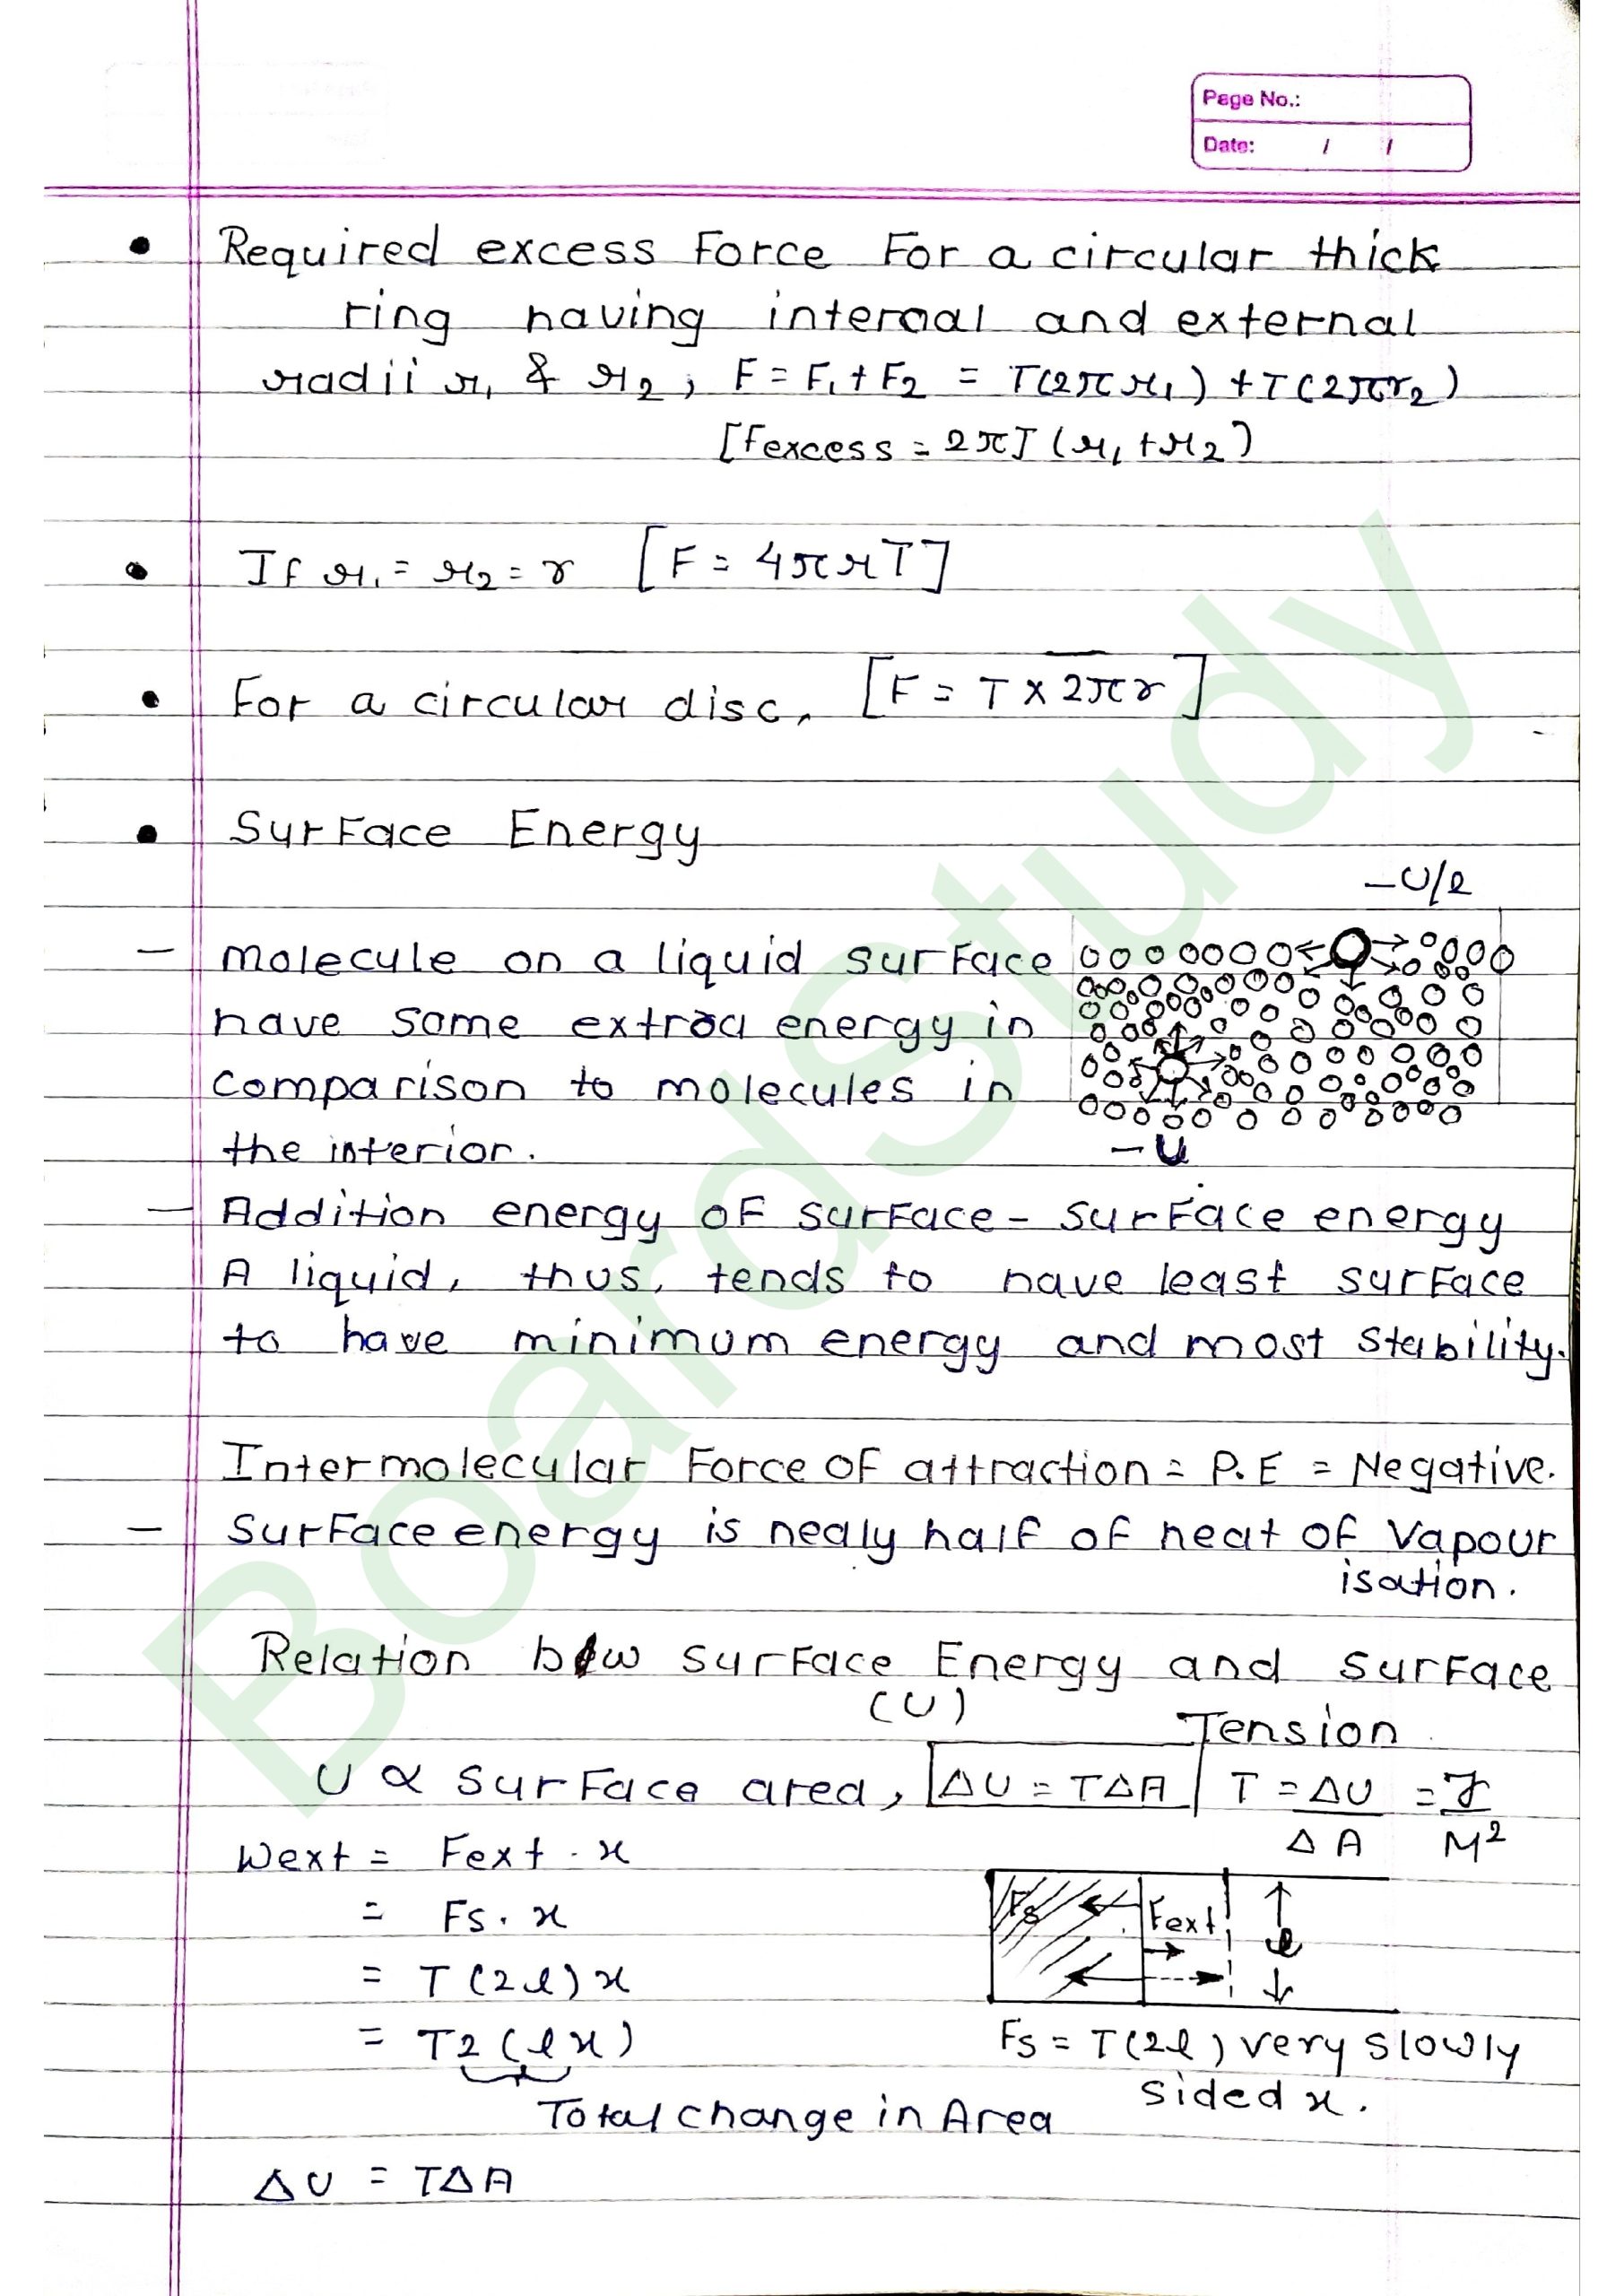 Page No.:
Date: / /
• Required excess Force For a circular thick
ring having internal and external
radii r₁ & r₂, F = F₁ + F₂ = T(2πr₁) + T(2πr₂)
[Fexcess = 2πT (r₁ + r₂)
• If r₁ = r₂ = r [F = 4πrT]
• For a circular disc, [F = T × 2πr]
• Surface Energy
-U/2
– molecule on a liquid surface
have some extraa energy in
comparison to molecules in
the interior.
-U
– Addition energy of surface - surface energy
A liquid, thus, tends to have least surface
to have minimum energy and most stability.
Intermolecular Force of attraction = P.E = Negative.
– Surface energy is nealy half of heat of Vapour
isation.
Relation b/w surface Energy and surface
(U)
Tension
U ∝ surface area, ΔU = TΔA T = ΔU/ΔA = J/M²
Wext = Fext . x
= Fs . x
= T (2l) x
= T2 (lx)
Total change in Area
ΔU = TΔA
Fs Fext l
Fs = T(2l) very slowly
sided x.
BoardStudy